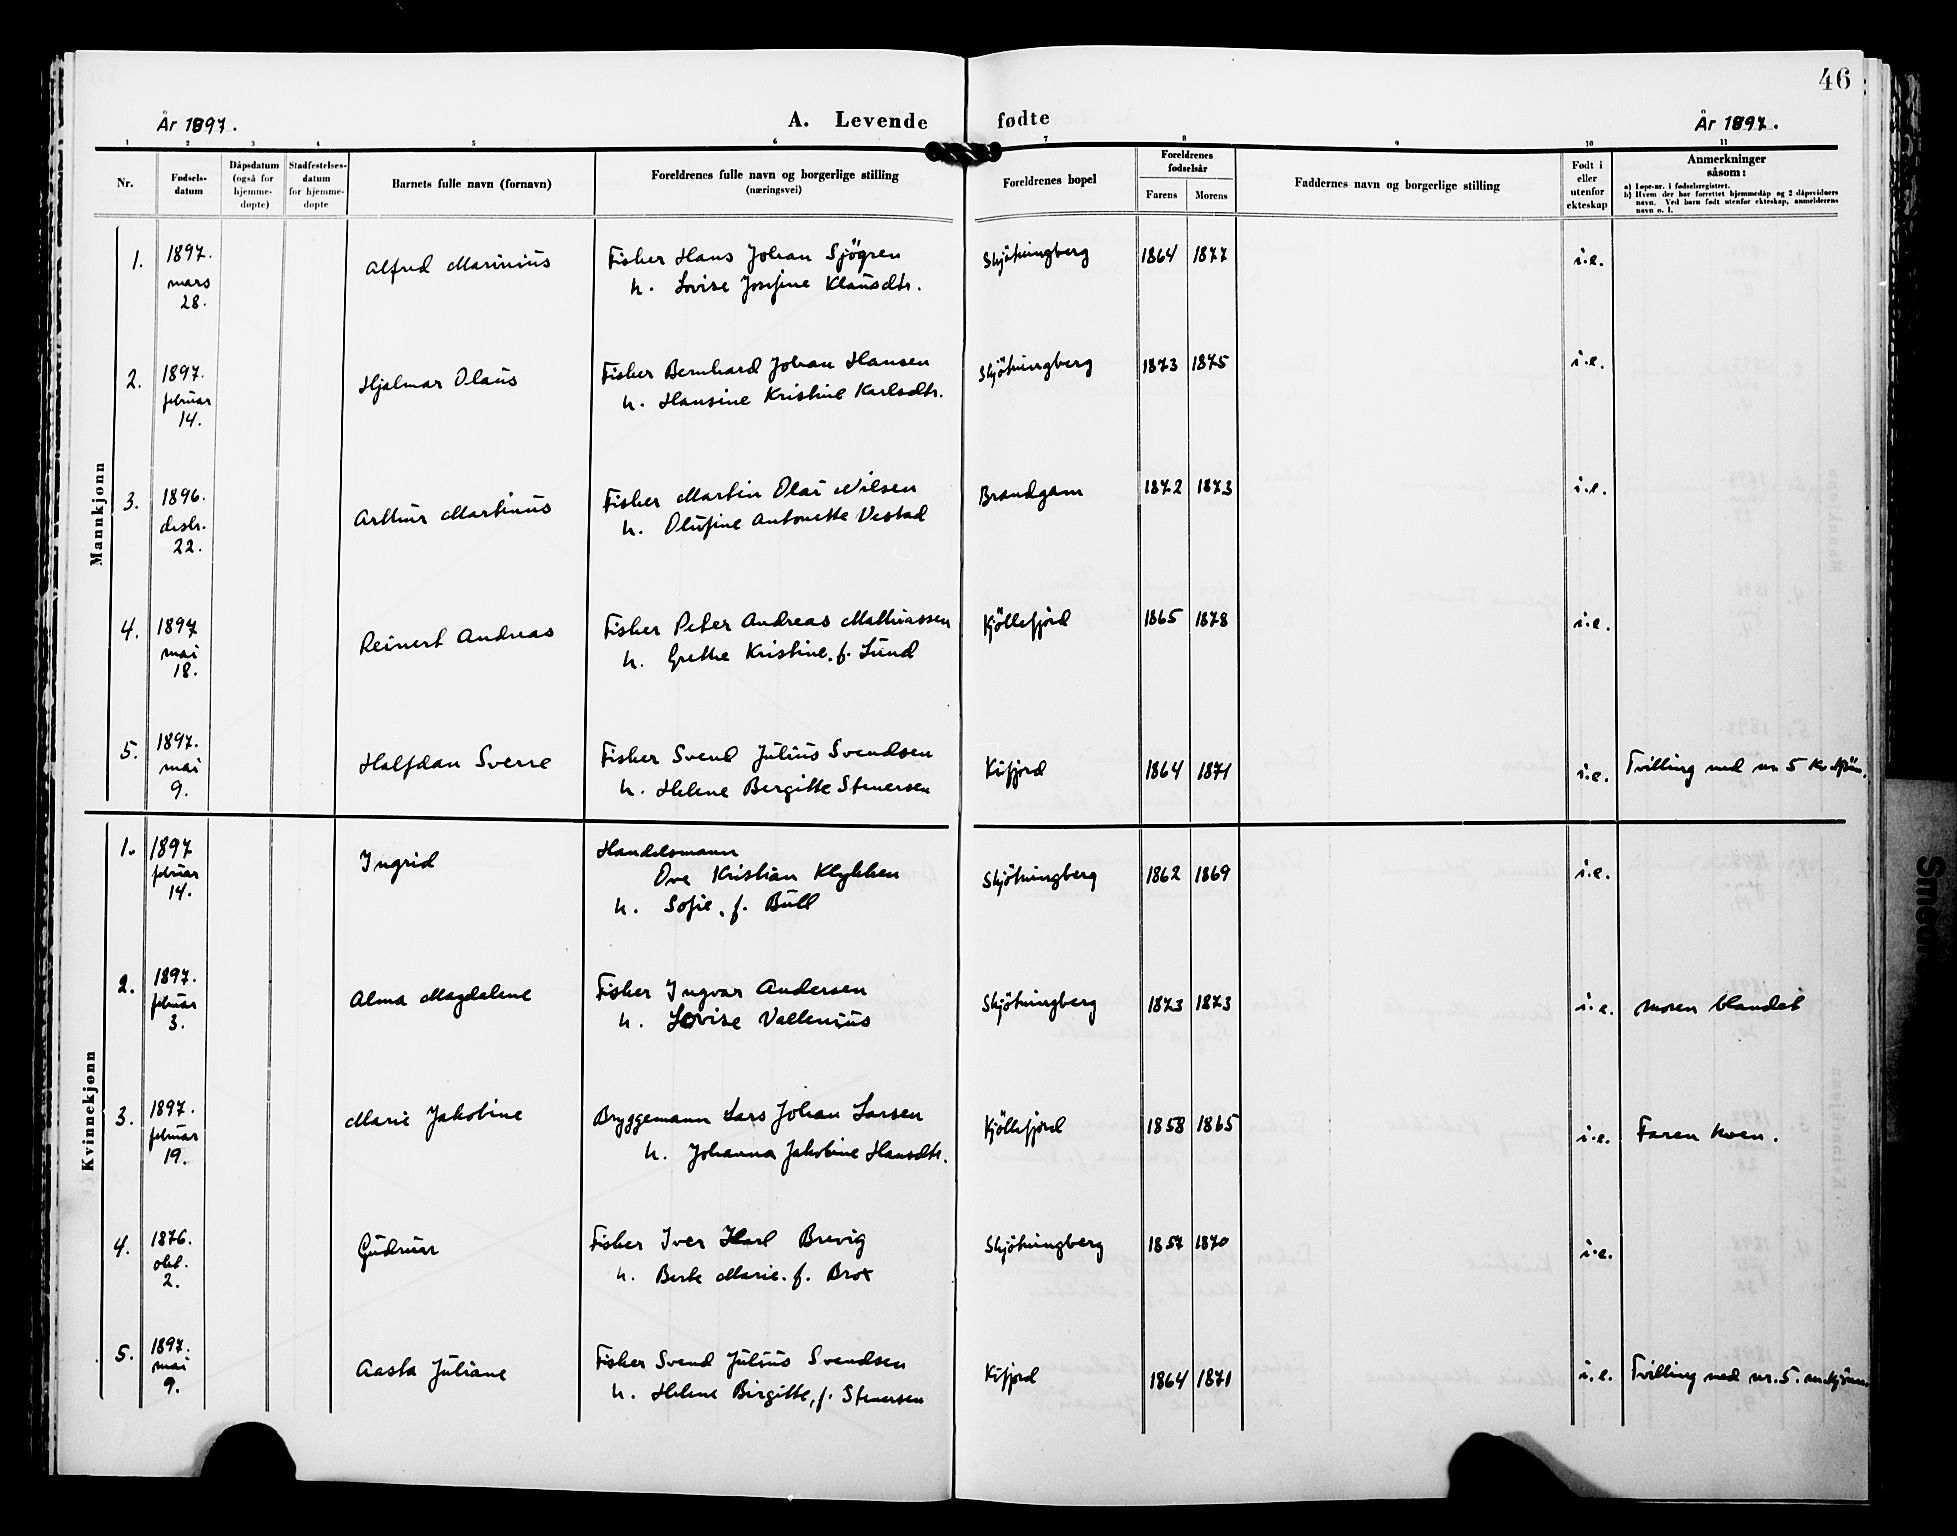 46
År 1897.
A. Levende fødte
År 1897.
1 2 3 4 5 6 7 8 9 10 11
Nr.
Fødsels-
datum
Dåpsdatum
(også for
hjemme-
døpte)
Stadfestelses-
datum
for hjemme-
døpte
Barnets fulle navn (fornavn)
Foreldrenes fulle navn og borgerlige stilling
(næringsvei)
Foreldrenes bopel
Foreldrenes
fødselsår
Farens Morens
Faddernes navn og borgerlige stilling
Født i
eller
utenfor
ekteskap
Anmerkninger
såsom:
a) Løpe-nr. i fødselsregistret.
b) Hvem der har forrettet hjemmedåp og 2 dåpsvidners
navn. Ved barn født utenfor ekteskap, anmelderens
navn o. l.
Mannkjønn
1. 1897. mars 28. Alfred Marinius Fisker Hans Johan Sjögren Skjötningberg 1864 1877 i.e.
h. Lovise Josefine Klausdtr.
2. 1897. februar 14. Hjalmar Olaus Fisker Bernhard Johan Hansen Skjötningberg 1873 1875 i.e.
h. Hansine Kristine Karlsdtr.
3. 1896. desbr. 22. Arthur Martinus Fisker Martin Olai Nilsen Brandgam 1872 1873 i.e.
h. Olufine Antonette Vestad
4. 1897 mai 18. Reinert Andreas Fisker Peter Andreas Mathiassen Kjöllefjord 1865 1878 i.e.
h. Grethe Kristine. f. Lund
5. 1897. mai 9. Halfdan Sverre Fisker Svend Julius Svendsen Kifjord 1864 1871 i.e. Tvilling med nr 5 kv.kjön.
h. Helene Bergitte Stenersen
Kvinnekjønn
1. 1897 februar 14. Ingrid Handelsmann
Ove Kristian Klykken Skjötningberg 1862 1869 i.e.
h. Sofie, f. Bull
2. 1897. februar 3. Alma Magdalene Fisker Ingvar Andersen Skjötningberg 1873 1873 i.e. moren blandet
h. Lovise Vallenius
3. 1897. februar 19. Marie Jakobine Bryggemann Lars Johan Larsen Kjöllefjord 1858 1865 i.e. Faren kven.
h. Johanna Jakobine Hansdtr.
4. 1876. okt. 2. Gudrun Fisker Iver Karl Brevig Skjötningberg 1857 1870 i.e.
h. Berte Marie. f. Brox
5. 1897. mai 9. Aasta Juliane Fisker Svend Julius Svendsen Kifjord 1864 1871 i.e. Tvilling med nr. 5. m.kjönn.
h. Helene Birgitte, f. Stenersen